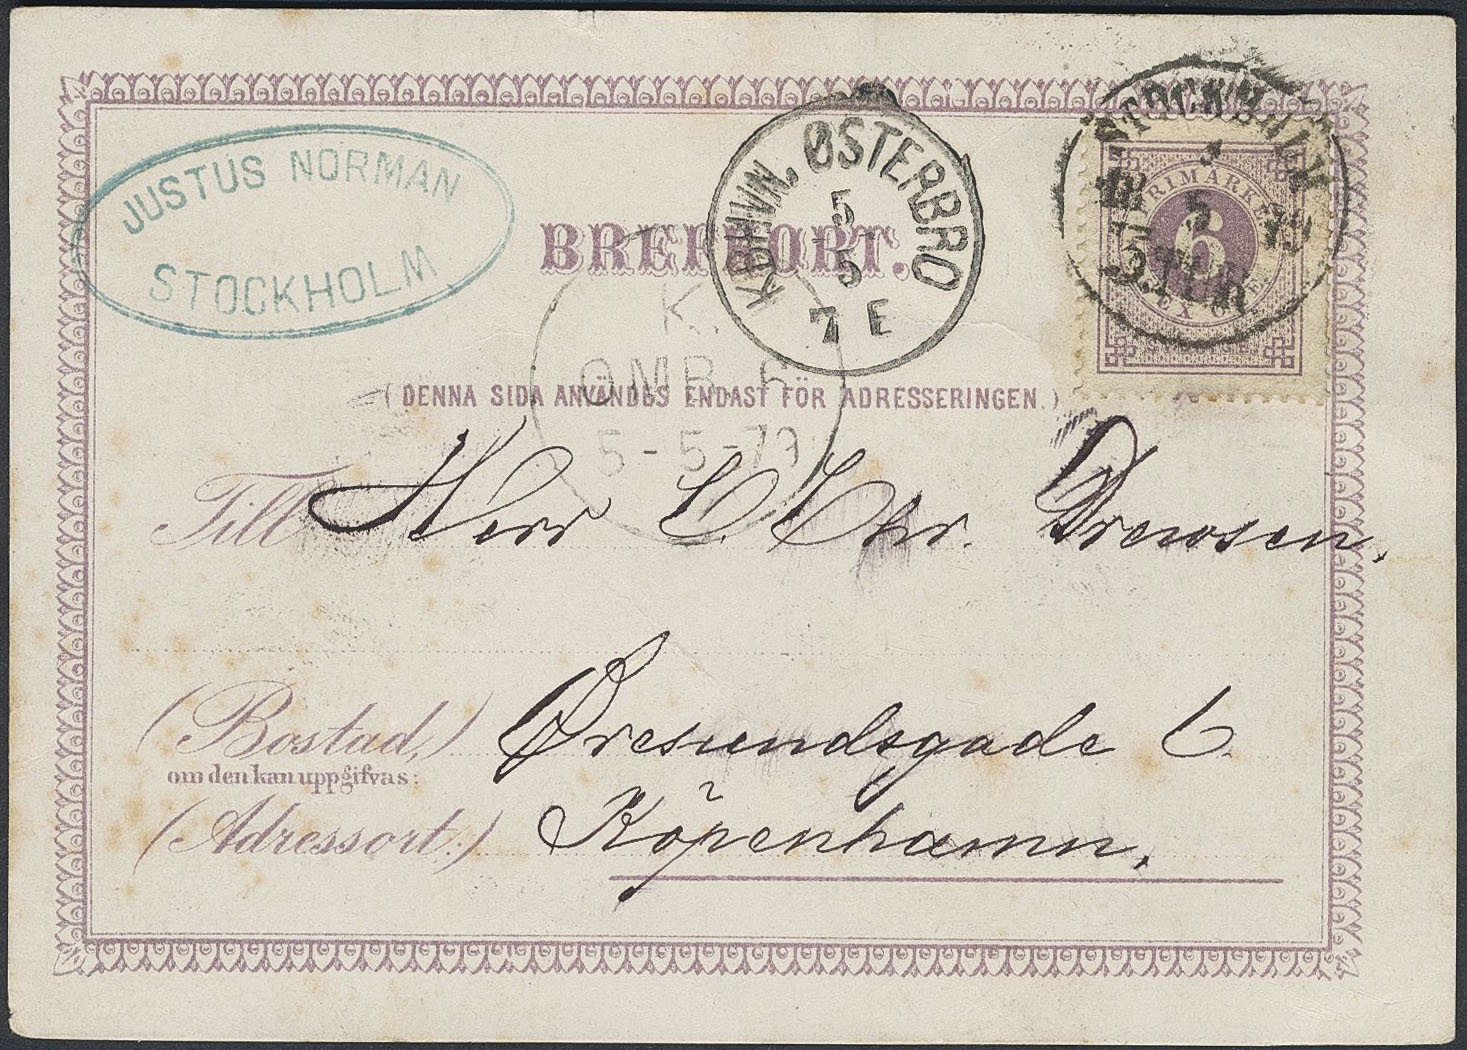 JUSTUS NORMAN
STOCKHOLM
BREFKORT.
KBHVN. ØSTERBRO
5
5
7 E
STOCKHOLM
5
79
FRIMÄRKE
6
SEX ÖRE
K.
OMB. 6
5-5-79
(DENNA SIDA ANVÄNDES ENDAST FÖR ADRESSERINGEN.)
Till Herr C. Chr. Drewsen.
(Bostad,) Øresundsgade 6.
om den kan uppgifvas:
(Adressort:) Köpenhamn.